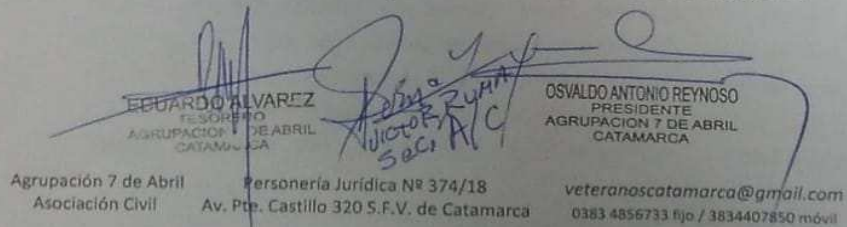 EDUARDO ALVAREZ
TESORERO
AGRUPACION 7 DE ABRIL
CATAMARCA
VICTOR RUMA
Sec. A/C
OSVALDO ANTONIO REYNOSO
PRESIDENTE
AGRUPACION 7 DE ABRIL
CATAMARCA
Agrupación 7 de Abril
Asociación Civil
Personería Jurídica Nº 374/18
Av. Pte. Castillo 320 S.F.V. de Catamarca
veteranoscatamarca@gmail.com
0383 4856733 fijo / 3834407850 móvil